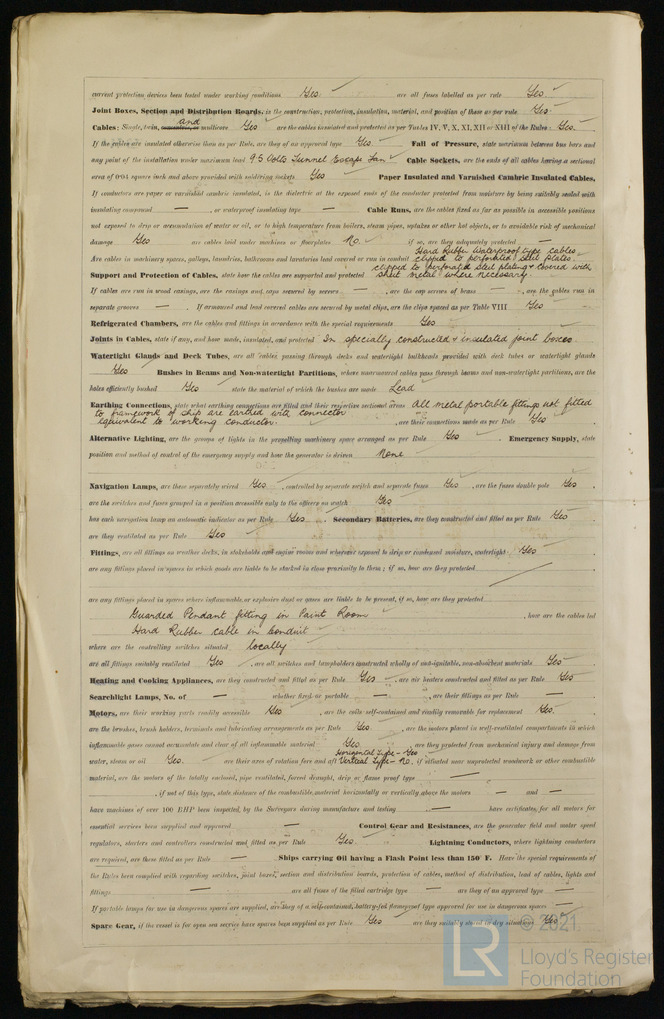 current protection devices been tested under working conditions Yes are all fuses labelled as per rule Yes.
Joint Boxes, Section and Distribution Boards, is the construction, protection, insulation, material, and position of these as per rule Yes
and
Cables: Single, twin, multicore Yes are the cables insulated and protected as per Tables IV, V, X, XI, XII or XIII of the Rules Yes.
If the cables are insulated otherwise than as per Rule, are they of an approved type Yes. Fall of Pressure, state maximum between bus bars and
any point of the installation under maximum load 9.5 Volts Tunnel Escape Fan Cable Sockets, are the ends of all cables having a sectional
area of 0.04 square inch and above provided with soldering sockets Yes Paper Insulated and Varnished Cambric Insulated Cables,
If conductors are paper or varnished cambric insulated, is the dielectric at the exposed ends of the conductor protected from moisture by being suitably sealed with
insulating compound — , or waterproof insulating tape — Cable Runs, are the cables fixed as far as possible in accessible positions
not exposed to drip or accumulation of water or oil, or to high temperature from boilers, steam pipes, uptakes or other hot objects, or to avoidable risk of mechanical
damage Yes are cables laid under machines or floorplates No. if so, are they adequately protected —
Hard Rubber Waterproof type cables
Are cables in machinery spaces, galleys, laundries, bathrooms and lavatories lead covered or run in conduit clipped to perforated steel plates
clipped to perforated steel plating & covered with
Support and Protection of Cables, state how the cables are supported and protected sheet metal where necessary.
If cables are run in wood casings, are the casings and caps secured by screws — , are the cap screws of brass — , are the cables run in
separate grooves — . If armoured and lead covered cables are secured by metal clips, are the clips spaced as per Table VIII Yes
Refrigerated Chambers, are the cables and fittings in accordance with the special requirements Yes
Joints in Cables, state if any, and how made, insulated, and protected In specially constructed & insulated joint boxes
Watertight Glands and Deck Tubes, are all cables passing through decks and watertight bulkheads provided with deck tubes or watertight glands
Yes Bushes in Beams and Non-watertight Partitions, where unarmoured cables pass through beams and non-watertight partitions, are the
holes efficiently bushed Yes state the material of which the bushes are made Lead
Earthing Connections, state what earthing connections are fitted and their respective sectional areas All metal portable fittings not fitted
to framework of ship are earthed with connector
equivalent to working conductor. , are their connections made as per Rule Yes
Alternative Lighting, are the groups of lights in the propelling machinery space arranged as per Rule Yes . Emergency Supply, state
position and method of control of the emergency supply and how the generator is driven None
Navigation Lamps, are these separately wired Yes , controlled by separate switch and separate fuses Yes , are the fuses double pole Yes
are the switches and fuses grouped in a position accessible only to the officers on watch Yes
has each navigation lamp an automatic indicator as per Rule Yes . Secondary Batteries, are they constructed and fitted as per Rule Yes
are they ventilated as per Rule Yes
Fittings, are all fittings on weather decks, in stokeholds and engine rooms and wherever exposed to drip or condensed moisture, watertight Yes
are any fittings placed in spaces in which goods are liable to be stacked in close proximity to them; if so, how are they protected —
are any fittings placed in spaces where inflammable or explosive dust or gases are liable to be present, if so, how are they protected
Guarded Pendant fitting in Paint Room , how are the cables led
Hard Rubber cable in conduit
where are the controlling switches situated locally
are all fittings suitably ventilated Yes , are all switches and lampholders constructed wholly of non-ignitable, non-absorbent materials Yes
Heating and Cooking Appliances, are they constructed and fitted as per Rule Yes , are air heaters constructed and fitted as per Rule Yes
Searchlight Lamps, No. of — , whether fixed or portable — , are their fittings as per Rule —
Motors, are their working parts readily accessible Yes , are the coils self-contained and readily removable for replacement Yes.
are the brushes, brush holders, terminals and lubricating arrangements as per Rule Yes , are the motors placed in well-ventilated compartments in which
inflammable gases cannot accumulate and clear of all inflammable material Yes , are they protected from mechanical injury and damage from
Horizontal Type - Yes
water, steam or oil Yes. are their axes of rotation fore and aft Vertical Type - No. if situated near unprotected woodwork or other combustible
material, are the motors of the totally enclosed, pipe ventilated, forced draught, drip or flame proof type —
, if not of this type, state distance of the combustible material horizontally or vertically above the motors — and —
have machines of over 100 BHP been inspected, by the Surveyors during manufacture and testing — have certificates, for all motors for
essential services been supplied and approved — Control Gear and Resistances, are the generator field and motor speed
regulators, starters and controllers constructed and fitted as per Rule Yes. Lightning Conductors, where lightning conductors
are required, are these fitted as per Rule — Ships carrying Oil having a Flash Point less than 150° F. Have the special requirements of
the Rules been complied with regarding switches, joint boxes, section and distribution boards, protection of cables, method of distribution, lead of cables, lights and
fittings — are all fuses of the filled cartridge type — are they of an approved type —
If portable lamps for use in dangerous spaces are supplied, are they of a self-contained, battery-fed flameproof type approved for use in dangerous spaces —
Spare Gear, if the vessel is for open sea service have spares been supplied as per Rule Yes are they suitably stored in dry situations Yes
LR
© 2021
Lloyd's Register
Foundation